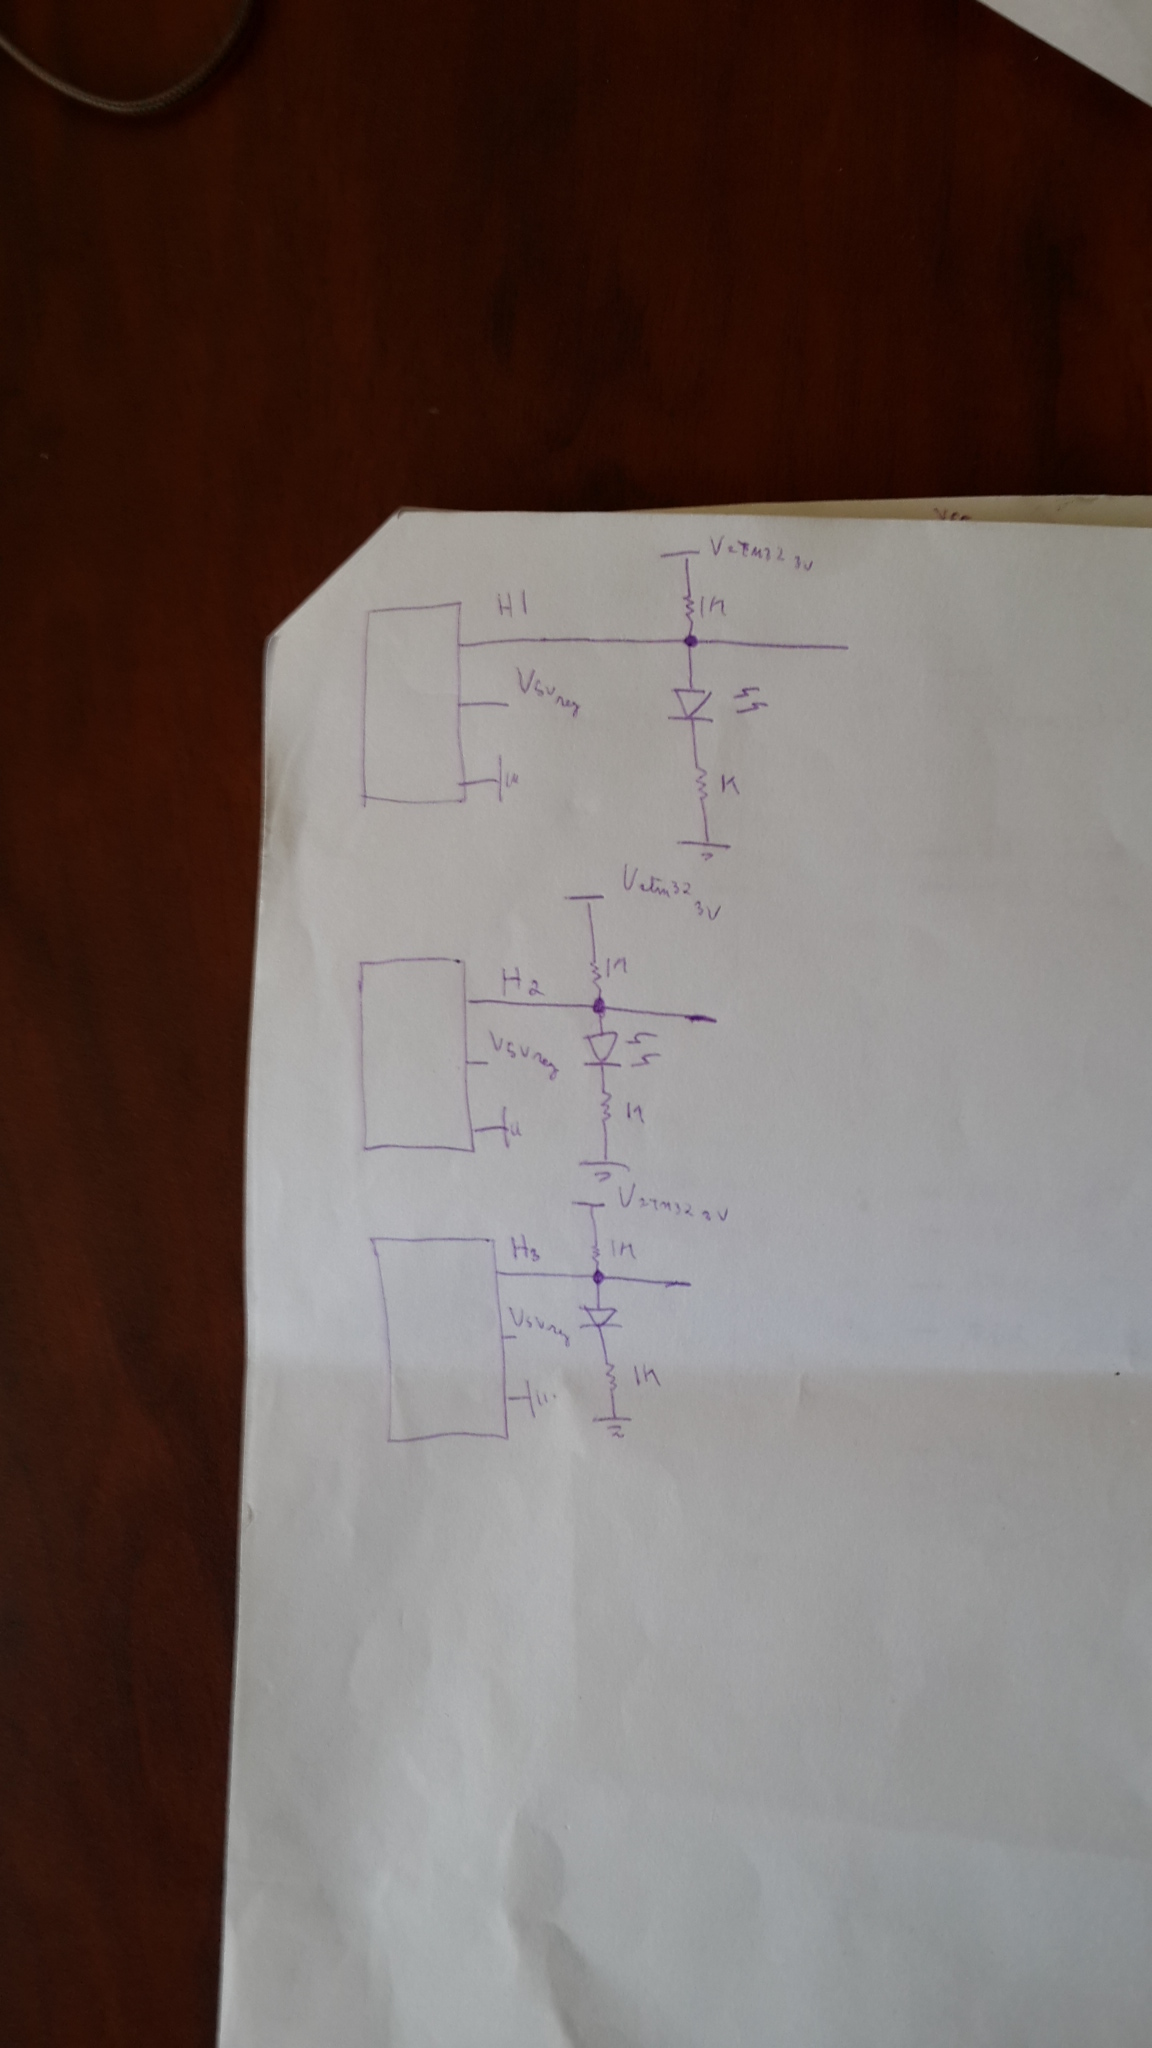 Vcc
VSTM32 3V
1K
H1
V5Vreg
K
Vstm32 3V
1K
H2
V5Vreg
1K
VSTM32 3V
H3
1K
V5Vreg
1K